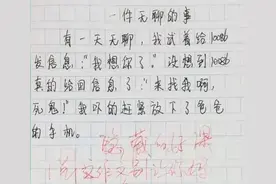 一件无聊的事
有一天无聊，我试着给10086
发信息："我想你了。"没想到
真的给回信息了："来找我啊，
死鬼！"我吓的赶紧放下了爸爸
的手机。